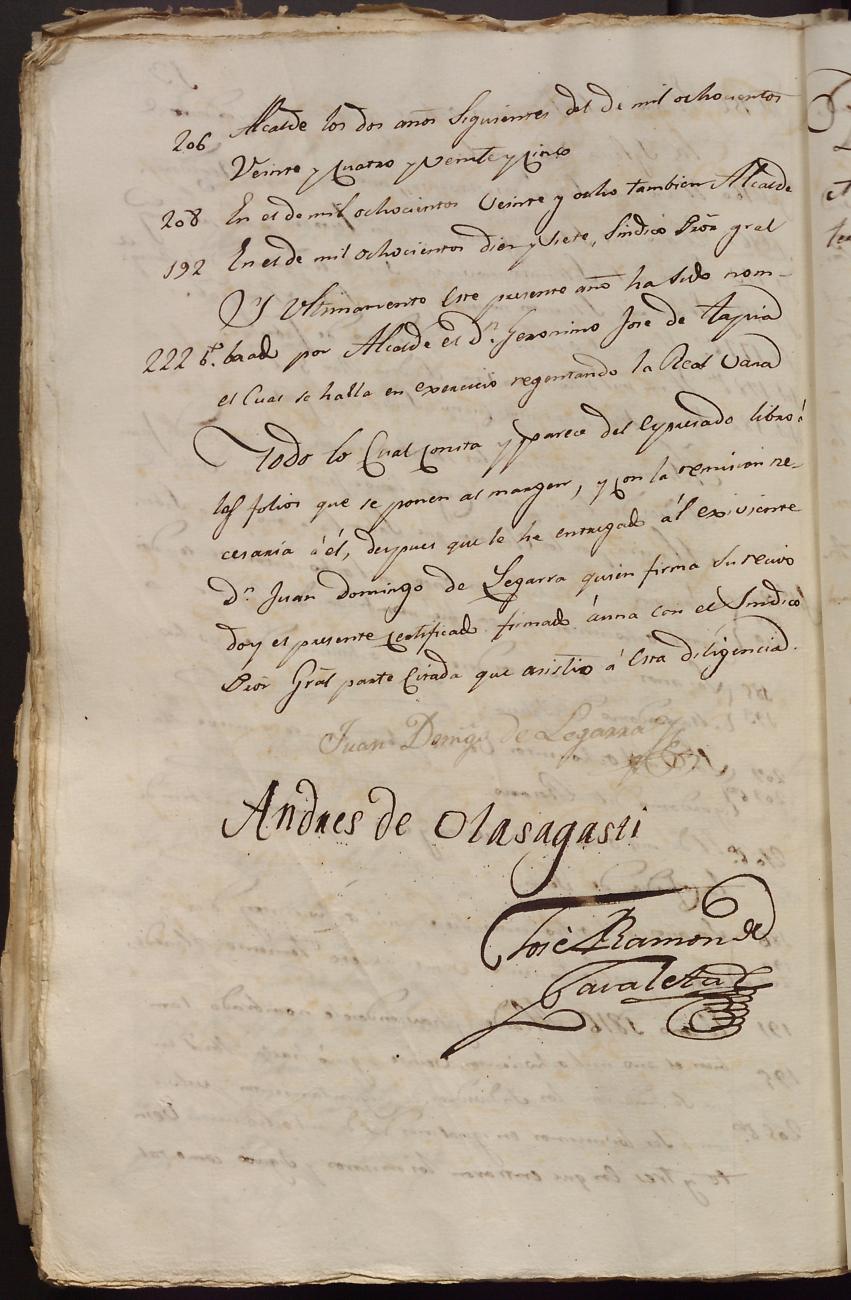 206 Alcalde los dos años Siguientes del de mil ochocientos
Veinte y quatro y veinte y cinco
208 En el de mil ochocientos veinte y ocho tambien Alcalde
192 En el de mil ochocientos diez y siete, Sindico Prõr gral
Y Ultimamente este presente año ha sido nom-
222 bto. brado por Alcalde el dn. Geronimo José de Tapia
el Cual se halla en exercicio regentando la Real Vara
Todo lo Cual consta y parece del expresado libro á
los folios que se ponen al margen, y con la remision ne-
cesaria á él, despues que le he entregado á el exiviente
dn. Juan Domingo de Legarra quien firma su recivo
doy el presente certificado firmado áuna con el Sindico
Prõr Grãl parte Citada que asistio á Esta diligencia.
Juan Domigo de Legarra
Andres de Olasagasti
José Ramon de
Zavaleta